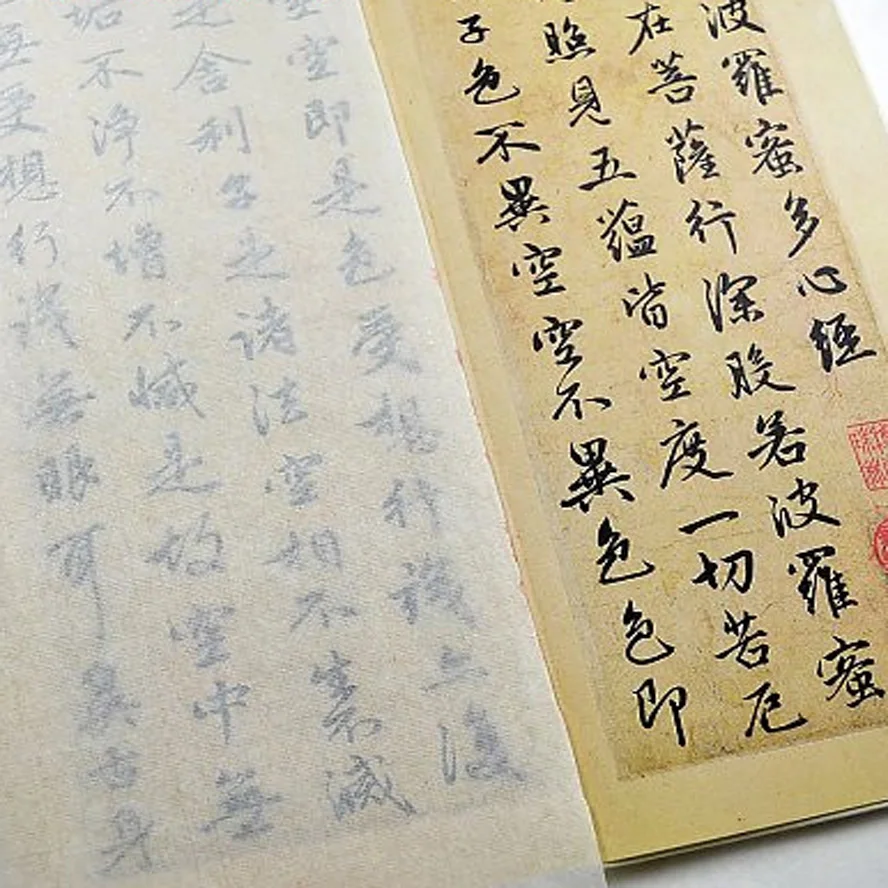 波羅蜜多心經
在菩薩行深般若波羅蜜
照見五蘊皆空度一切苦厄
子色不異空空不異色色即
空即是色受想行識亦復
是舍利子是諸法空相不生不滅
垢不淨不增不減是故空中無
無受想行識無眼耳鼻舌身